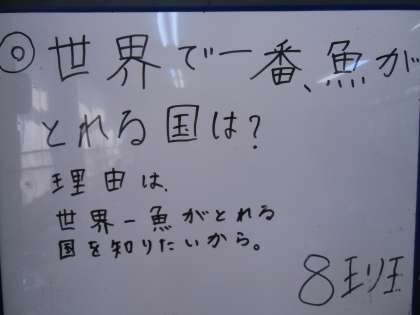 ◎世界で一番、魚が
とれる国は？
理由は、
世界一魚がとれる
国を知りたいから。
8班